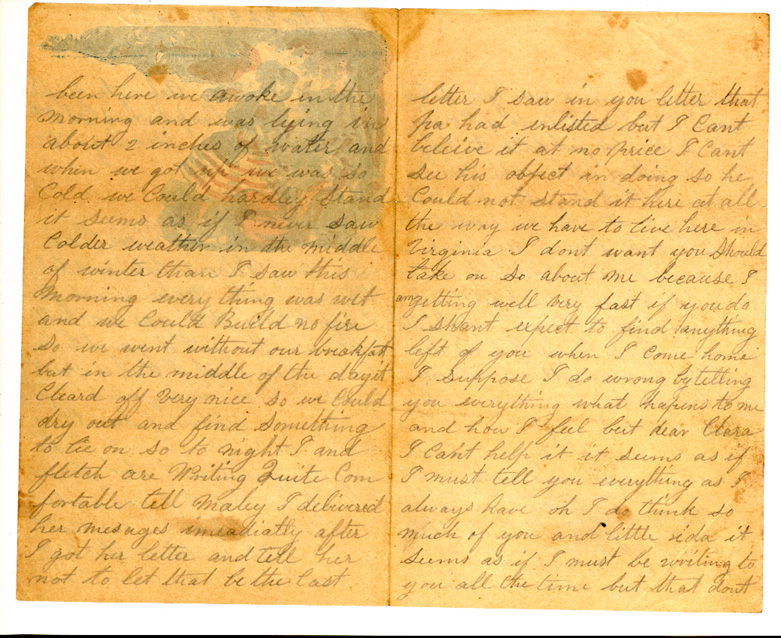 been here we awoke in the
morning and was lying in
about 2 inches of water and
when we got up we was so
Cold we Could hardley Stand
it seems as if I never saw
Colder weather in the middle
of winter thare I saw this
morning every thing was wet
and we Could Build no fire
So we went without our breakfast
but in the middle of the day it
Cleard off very nice so we Could
dry out and find Something
to lie on so to night I and
fletch are Writing Quite Com
fortable tell Maley I delivered
her mesuges imeadiatly after
I got her letter and tell her
not to let that be the last
letter I saw in you letter that
pa had inlisted but I Cant
beleive it at no price I Cant
see his object an doing so he
Could not stand it here at all
the way we have to live here in
Virginia I dont want you Should
take on so about me because I
am getting well very fast if you do
I shant expect to find anything
left of you when I come home
I suppose I do wrong by telling
you everything what hapens to me
and how I feel but dear Clara
I can't help it it seems as if
I must tell you everything as I
always have oh I do think so
much of you and little it
seems as if I must be writing to
you all the time but that dont